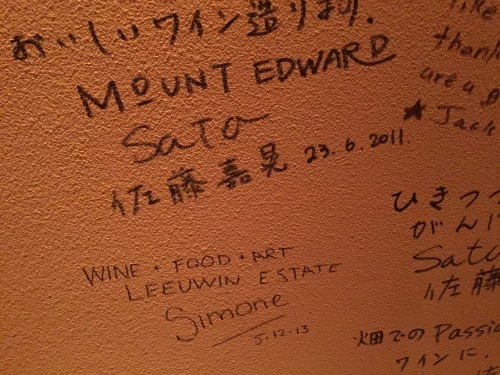 おいしいワイン造ります.
MOUNT EDWARD
Sato
佐藤嘉晃 23.6.2011.
WINE + FOOD + ART
LEEUWIN ESTATE
Simone
5.12.13
like
are a
★ Jack
ひきつ
がんば
Sato
佐藤
畑での Passio
ワインに.